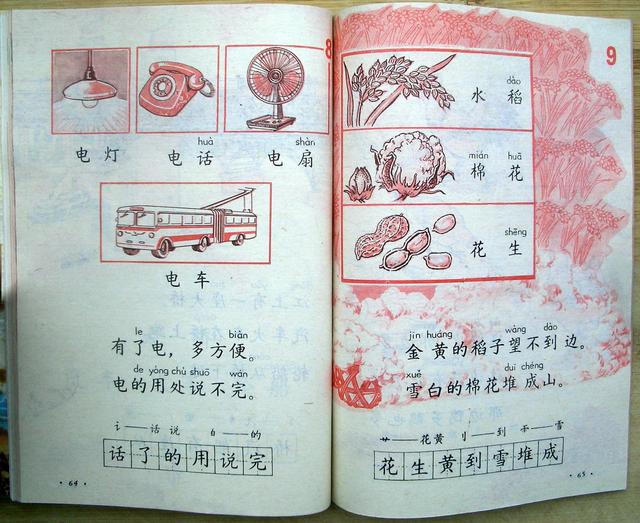 8
huà shàn
电灯 电话 电扇
电车
le biàn
有了电，多方便。
de yòng chù shuō wán
电的用处说不完。
讠——话说 白——的
话了的用说完
· 64 ·
9
dào
水稻
mián huā
棉花
shēng
花生
jīn huáng wàng dào
金黄的稻子望不到边。
xuě duī chéng
雪白的棉花堆成山。
艹——花黄 刂——到 雨——雪
花生黄到雪堆成
· 65 ·